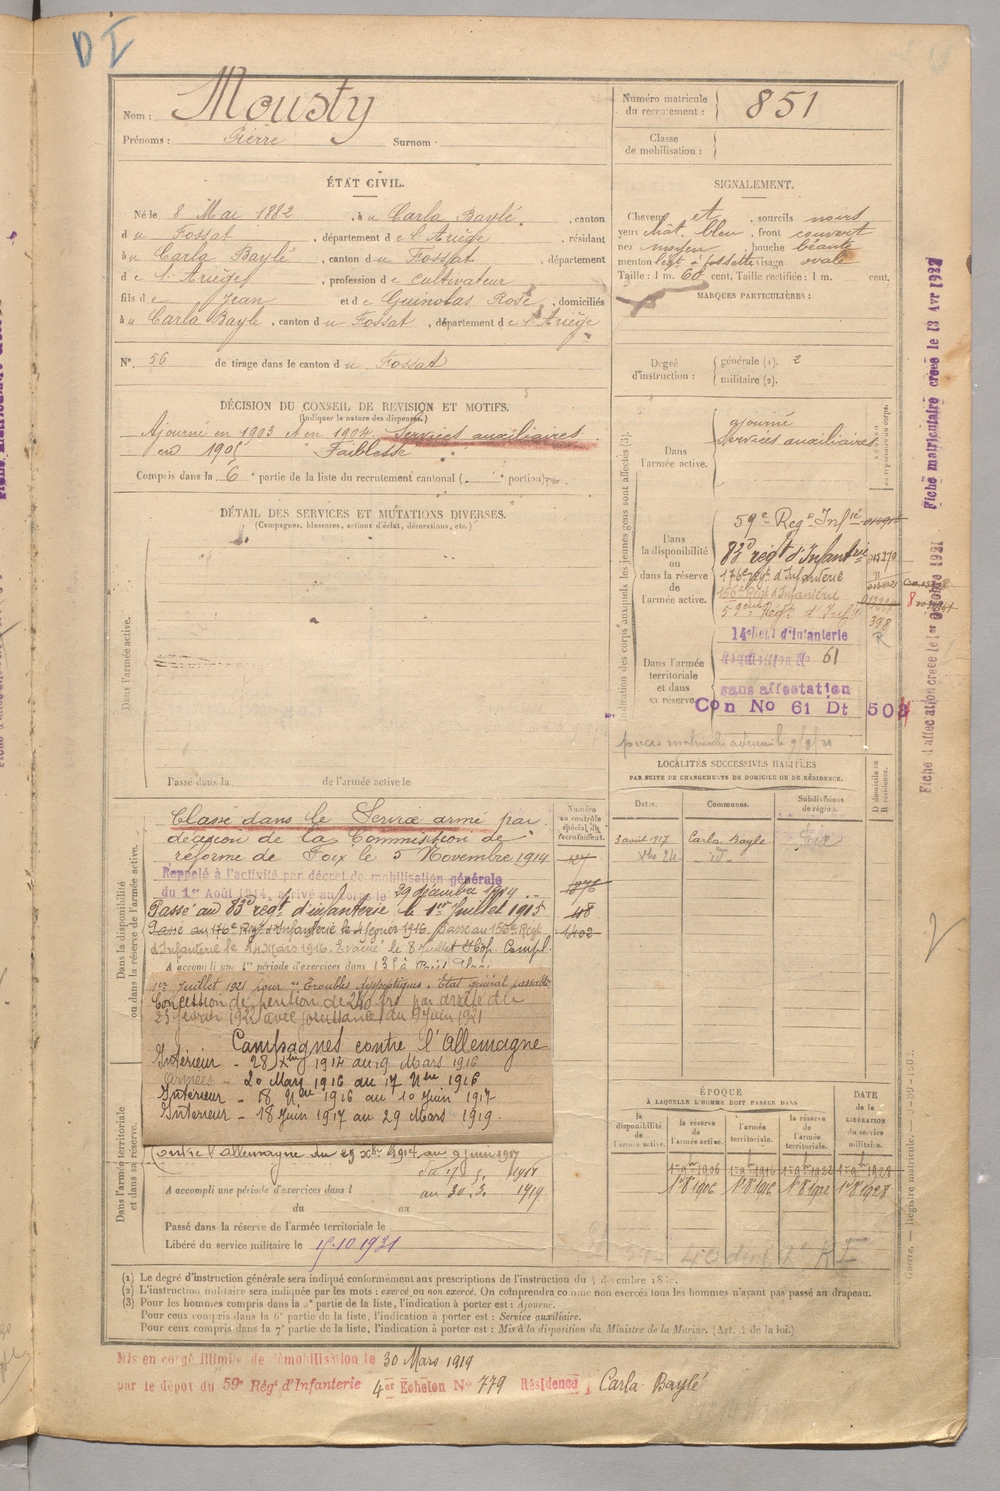 D I
Nom : Mousty
Prénoms : Pierre Surnom
Numéro matricule du recrutement : 851
Classe de mobilisation :
ÉTAT CIVIL.
Né le 8 Mai 1882, à u Carla Baylé, canton
d u Fossat, département d e l'Ariège, résidant
à u Carla Baylé, canton d u Fossat, département
d e l'Arièges, profession de cultivateur
fils d e Jean et d e Guinolas Rose, domiciliés
à u Carla Bayle, canton d u Fossat, département d e l'Ariège
N° 56 de tirage dans le canton d u Fossat
SIGNALEMENT.
Cheveux et, sourcils noirs
yeux chât. bleu, front couvert
nez moyen, bouche béante
menton à fossette visage ovale
Taille : 1 m. 60 cent. Taille rectifiée : 1 m. cent.
MARQUES PARTICULIÈRES :
Degré d'instruction : générale (1). 2
militaire (2).
DÉCISION DU CONSEIL DE REVISION ET MOTIFS.
(Indiquer la nature des dispenses.)
Ajourné en 1903 et en 1904. Services auxiliaires
en 1905 Faiblesse
Compris dans la 6e partie de la liste du recrutement cantonal ( portion)
DÉTAIL DES SERVICES ET MUTATIONS DIVERSES.
(Campagnes, blessures, actions d'éclat, décorations, etc.)
Dans l'armée active.
Passé dans la de l'armée active le
Indication des corps auxquels les jeunes gens sont affectés (3).
Dans l'armée active.
ajourné
Services auxiliaires
Dans la disponibilité ou dans la réserve de l'armée active.
59e Regt Infie
83e régt d'Infanterie
176e régt d'Infanterie
156e Régt d'Infanterie
59eme Régt d'Infie
398
R
Dans l'armée territoriale et dans sa réserve.
14e Regt d'infanterie
Réquisition No 61
sans affectation
Con No 61 Dt 503
LOCALITÉS SUCCESSIVES HABITÉES
PAR SUITE DE CHANGEMENTS DE DOMICILE OU DE RÉSIDENCE.
Dates. Communes. Subdivisions de région. D domicile ou R résidence.
3 août 1917 Carla Bayle Foix
Xbre 24 id
Fiche matriculaire créée le 13 Avr 1922
Fiche d'affectation créée le 1er Octobre 1921
Dans la disponibilité ou dans la réserve de l'armée active.
Numéro au contrôle spécial du recrutement.
Classé dans le Service armé par
décision de la Commission de
réforme de Foix le 5 Novembre 1914
Rappelé à l'activité par décret de mobilisation générale
du 1er Août 1914, arrivé au corps le 29 décembre 1914
Passé au 83e régt d'infanterie le 1er Juillet 1915
Passé au 176e Régt d'Infanterie le 4 février 1916. Passé au 156e Régt
d'Infanterie le 20 Mars 1916. Evacué le 8 Juillet
A accompli une 1re période d'exercices dans
1er Juillet 1921 pour "Troubles dyspeptiques. Etat général passable
Concession de pention de 240 frs par arrêté du
25 février 1922 avec jouissance du 9 Juin 1921
Campagnes contre l'Allemagne
Intérieur - 28 Xbre 1914 au 19 Mars 1916
armées - 20 Mars 1916 au 17 Nbre 1916
Intérieur - 18 Nbre 1916 au 10 juin 1917
Intérieur - 18 Juin 1917 au 29 Mars 1919.
Dans l'armée territoriale et dans sa réserve.
Contre l'allemagne du 29 Xbre 1914 au 9 juin 1917
A accompli une période d'exercices dans l
au 30.3. 1919.
du au
Passé dans la réserve de l'armée territoriale le
Libéré du service militaire le 15.10 1931
ÉPOQUE
À LAQUELLE L'HOMME DOIT PASSER DANS
la disponibilité de l'armée active.
la réserve de l'armée active.
l'armée territoriale.
la réserve de l'armée territoriale.
DATE de la LIBÉRATION du service militaire.
1r 8 1906 1r 8 1916 1r 8 1922 1r 8 1928
Guerre. — Registre matricule.
(1) Le degré d'instruction générale sera indiqué conformément aux prescriptions de l'instruction du 4 décembre
(2) L'instruction militaire sera indiquée par les mots : exercé ou non exercé. On comprendra comme non exercés tous les hommes n'ayant pas passé au drapeau.
(3) Pour les hommes compris dans la 5e partie de la liste, l'indication à porter est : Ajourné.
Pour ceux compris dans la 6e partie de la liste, l'indication à porter est : Service auxiliaire.
Pour ceux compris dans la 7e partie de la liste, l'indication à porter est : Mis à la disposition du Ministre de la Marine. (Art. 4 de la loi.)
Mis en congé illimité de démobilisation le 30 Mars 1919
par le dépôt du 59e Régt d'Infanterie 4er Echelon No 779 Résidence Carla Baylé